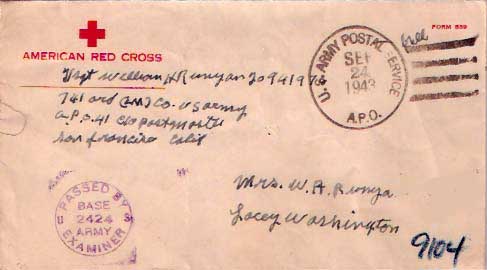 FORM 539
AMERICAN RED CROSS
T/Sgt William H Runyan 20941978
741 ord (M) Co. US army
A.P.O. 41 c/o postmaster
San francisco Calif
U.S. ARMY POSTAL SERVICE
SEP
24
1943
A.P.O.
PASSED BY
BASE
U 2424 S
ARMY
EXAMINER
Mrs. W. H. Runya
Lacey Washington
9104